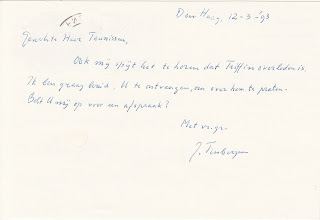 Den Haag, 12-3-'93
Geachte Heer Teunissen,
Ook mij spijt het te horen dat Triffin overleden is.
Ik ben graag bereid U te ontvangen, om over hem te praten.
Belt U mij op voor een afspraak?
Met vr. gr.
J. Tinbergen